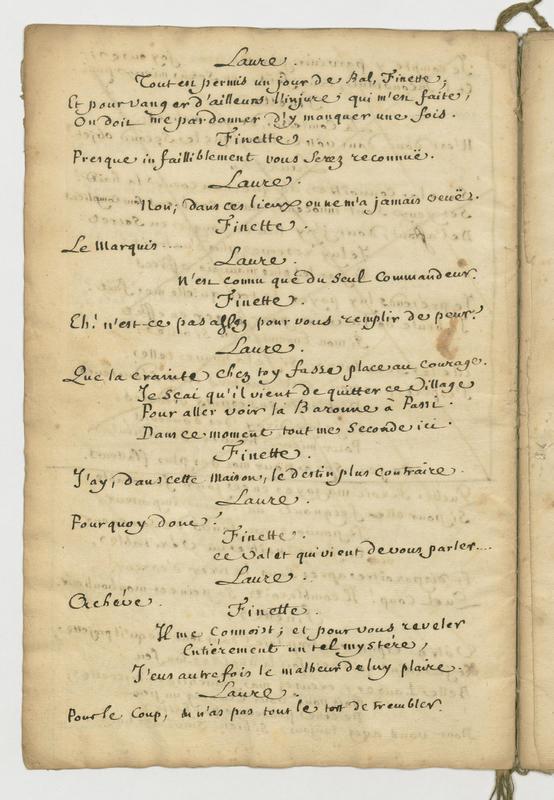 Laure.
Tout est permis un jour de Bal, Finette;
Et pour vanger d'ailleurs l'injure qui m'est faite,
On doit me pardonner d'y manquer une fois.
Finette.
Presque infailliblement vous serez reconnuë.
Laure.
Non; dans ces lieux on ne m'a jamais veuë.
Finette.
Le Marquis....
Laure.
N'est connu que du seul Commandeur.
Finette.
Eh! n'est-ce pas assez pour vous remplir de peur?
Laure.
Que la crainte chez toy fasse place au courage.
Je sçai qu'il vient de quitter ce village
Pour aller voir la Baronne à Passi.
Dans ce moment tout me seconde ici.
Finette.
J'ay, dans cette maison, le destin plus contraire.
Laure.
Pourquoy donc?
Finette.
ce valet qui vient de vous parler....
Laure.
Achéve.
Finette.
Il me connoist; et pour vous reveler
Entiérement un tel mystére,
J'eus autrefois le malheur de luy plaire.
Laure.
Pour le coup, tu n'as pas tout le tort de trembler.